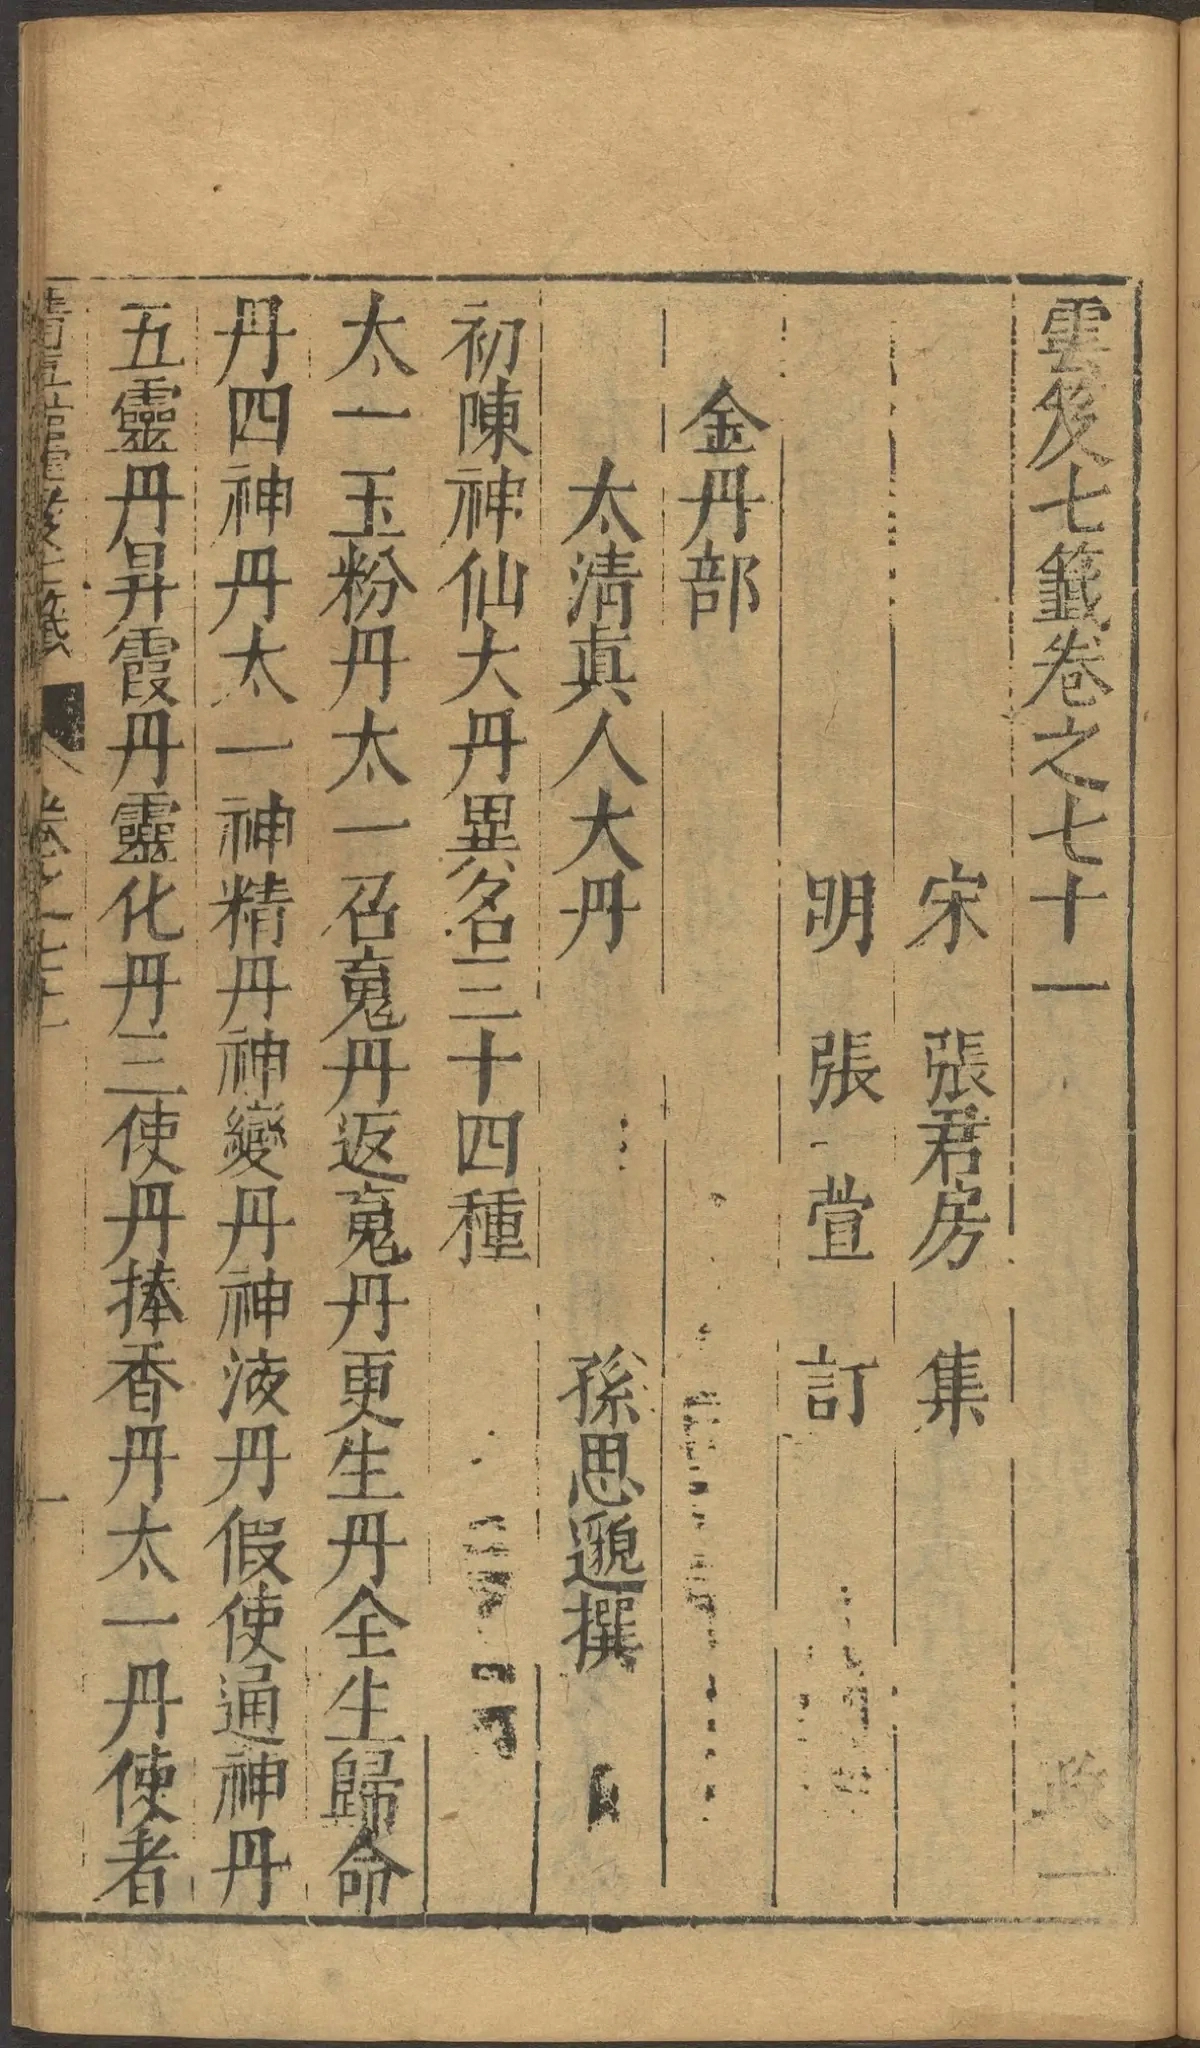 雲笈七籤卷之七十一 政一
宋 張君房 集
明 張萱 訂
金丹部
太清真人大丹 孫思邈撰
初陳神仙大丹異名三十四種
太一玉粉丹太一召䰟丹返䰟丹更生丹全生歸命
丹四神丹太一神精丹神變丹神液丹假使通神丹
五靈丹昇霞丹靈化丹三使丹捧香丹太一丹使者
清真館雲笈七籤 卷之七十一 一